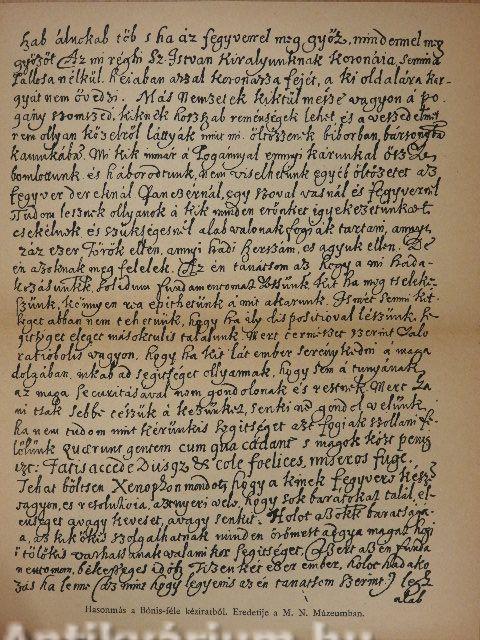 hab álnokab több s ha az fegyverrel meg győz, mindennel meg
győzöt Az mi réghi Sz. Istvan Kiralyunknak Koronáia, semmi a
Pallosa nélkül. heiaban azzal koronázza fejét, a ki oldalára kar-
gyát nem óvedzi. Más Nemzetek kiktül messe vagyon á po-
gány szomszed, kiknek hoszszab reménségek lehet és a veszedelmet
nem ollyan közelről láttyák mint mi. öltözzenek biborban, bársonyba
kamukába. Mi kik immár a Pogannyal ennyi karunkal
bomlottunk. és háborodtunk, nem viselhetünk egyéb öltözetet az
fegyver dereknál Panczernál, egy szoval vasnál és fegyvernél
Tudom lesznek ollyanok á kik minden erőnket igyekezetünket
csekélnek és szükségesnél alab valonak fogják tartani, annyi,
száz ezer Török ellen, annyi hadi herszám, es agyuk ellen. De
én azoknak meg felelek. Az én tanátsom az hogy a mi hada-
kozásunkk, solidum fundamentomot vessünk, kit ha meg cselek-
szünk, könnyen reá epithetünk á mit akarunk. Ismét semmi két-
séget abban nem tehetünk, hogy ha ily dispositioval leszünk, se-
gitséget eleget másoktulis talalunk. Mert termeszet szerint valo
ratiobolis vagyon, hogy ha kit lát ember serénykedni á maga
dolgában, inkab ad segitseget ollyannak, hogy sem á tunyának
az maga securitásával nem gondolonak és restnek. Mert ha
mi csak sebbe tészük á kezünket, senki nem gondol velünk
ha nem tudom mit kérünkis segitséget azt fogjak szollani
felölünk quærunt gentem cum qua cadant s magok közt penig
ezt: Fatis accede Deisq; & cole foelices, miseros fuge.
Tehat böltsen Xenophon mondotta hogy a kinek fegyvere kész
vagyon, és resolutioia, aztnyeri vele, hogy sok baratokat talál, el-
enséget avagy keveset, avagy senkit. Holot azokk baratsága-
a, az kik ökis szolgalhatnak minden örömest adgya magat hogy
ö tölökis várhassanak valami kor segitséget. Azert az én funda-
mentomom, békességes időtt Tizenket ezer ember, holot hadako-
zás ha lenne (az mint hogy legyenis az én tanátsom szerint) légy
alab
Hasonmás a Bónis-féle kéziratból. Eredetije a M. N. Múzeumban.
Antikvárium.hu